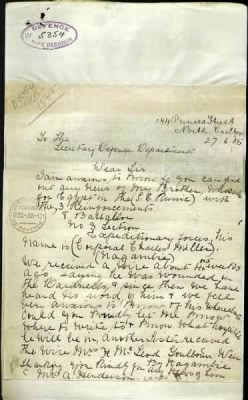 DEFENCE
8354
144 Princes Street
North Carlton
27.6.15
To The
Secretary Defence Department
Dear Sir
I am anxious to know if you can find
out any news of My Brother, who
for Egypt in the S.S. Runic with
the 3 Reinforcements
Battalion
No 3 Section
Expeditionary forces, His
Name is (Corporal Charles Miller)
(Nagambie)
We received a Wire about five Weeks
ago, saying he was wounded in
the Dardanelles, & since then we have
heard no word of him & we feel
very anxious to know his
Could you kindly let me know
where to write to & know what hospital
he will be in, Another Sister received
the Wire Mrs H. McLeod Goulburn Weir
thanking you kindly
Nagambie
Mrs A. Henderson